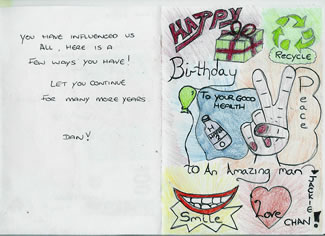 YOU HAVE INFLUENCED US
ALL, HERE IS A
FEW WAYS YOU HAVE!
LET YOU CONTINUE
FOR MANY MORE YEARS
DAN!
HAPPY
RECYCLE
Birthday
Peace
TO YOUR GOOD
HEALTH
H2O
To An Amazing man
JACKIE
CHAN!
Smile
Love